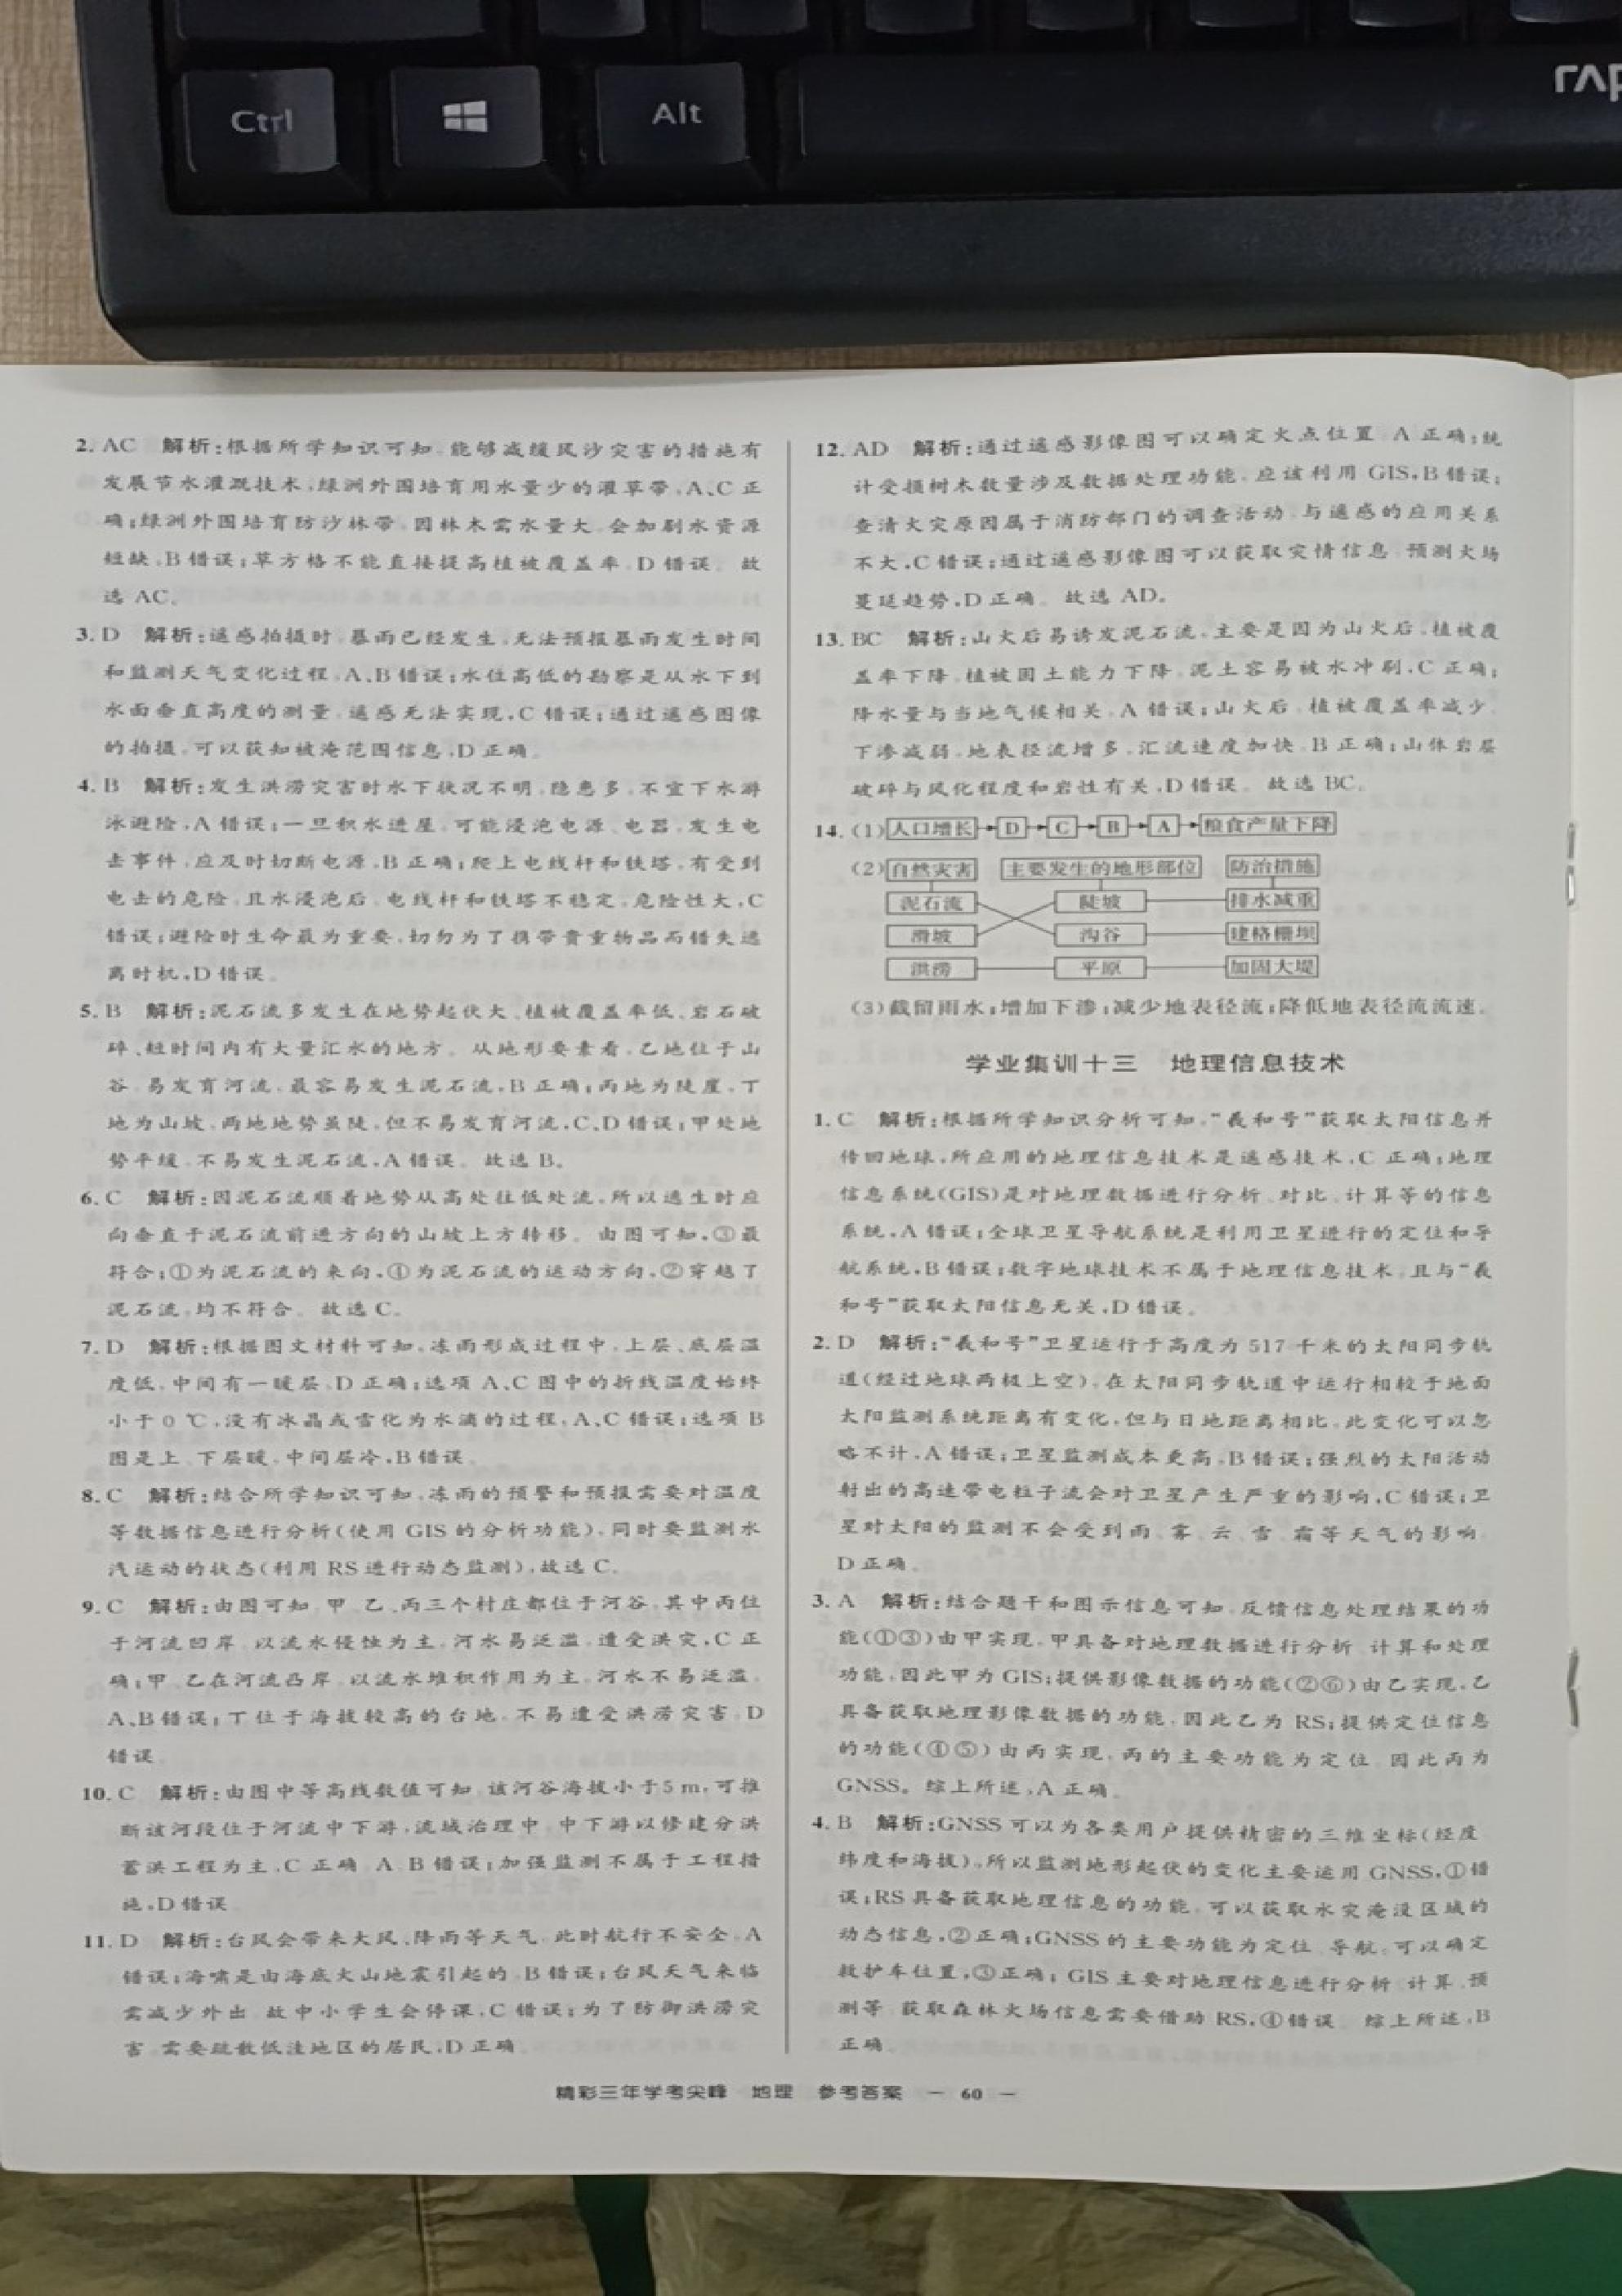 Ctrl
Alt
2. AC 解析:根据所学知识可知,能够减缓风沙灾害的措施有
发展节水灌溉技术,绿洲外围培育用水量少的灌草带,A、C正
确;绿洲外围培育防沙林带,因林木需水量大,会加剧水资源
短缺,B错误;草方格不能直接提高植被覆盖率,D错误。故
选 AC。
3. D 解析:遥感拍摄时,暴雨已经发生,无法预报暴雨发生时间
和监测天气变化过程,A、B错误;水位高低的勘察是从水下到
水面垂直高度的测量,遥感无法实现,C错误;通过遥感图像
的拍摄,可以获知被淹范围信息,D正确。
4. B 解析:发生洪涝灾害时水下状况不明,隐患多,不宜下水游
泳避险,A错误;一旦积水进屋,可能浸泡电源、电器,发生电
击事件,应及时切断电源,B正确;爬上电线杆和铁塔,有受到
电击的危险,且水浸泡后,电线杆和铁塔不稳定,危险性大,C
错误;避险时生命最为重要,切勿为了携带贵重物品而错失逃
离时机,D错误。
5. B 解析:泥石流多发生在地势起伏大、植被覆盖率低、岩石破
碎、短时间内有大量汇水的地方。从地形要素看,乙地位于山
谷,易发育河流,最容易发生泥石流,B正确;丙地为陡崖,丁
地为山坡,两地地势虽陡,但不易发育河流,C、D错误;甲处地
势平缓,不易发生泥石流,A错误。故选B。
6. C 解析:因泥石流顺着地势从高处往低处流,所以逃生时应
向垂直于泥石流前进方向的山坡上方转移。由图可知,③最
符合;①为泥石流的来向,④为泥石流的运动方向,②穿越了
泥石流,均不符合。故选C。
7. D 解析:根据图文材料可知,冻雨形成过程中,上层、底层温
度低,中间有一暖层,D正确;选项A、C图中的折线温度始终
小于0 ℃,没有冰晶或雪化为水滴的过程,A、C错误;选项B
图是上、下层暖,中间层冷,B错误。
8. C 解析:结合所学知识可知,冻雨的预警和预报需要对温度
等数据信息进行分析(使用GIS的分析功能),同时要监测水
汽运动的状态(利用RS进行动态监测),故选C。
9. C 解析:由图可知,甲、乙、丙三个村庄都位于河谷,其中丙位
于河流凹岸,以流水侵蚀为主,河水易泛滥,遭受洪灾,C正
确;甲、乙在河流凸岸,以流水堆积作用为主,河水不易泛滥,
A、B错误;丁位于海拔较高的台地,不易遭受洪涝灾害,D
错误。
10. C 解析:由图中等高线数值可知,该河谷海拔小于5 m,可推
断该河段位于河流中下游,流域治理中,中下游以修建分洪
蓄洪工程为主,C正确,A、B错误;加强监测不属于工程措
施,D错误。
11. D 解析:台风会带来大风、降雨等天气,此时航行不安全,A
错误;海啸是由海底火山地震引起的,B错误;台风天气来临
需减少外出,故中小学生会停课,C错误;为了防御洪涝灾
害,需要疏散低洼地区的居民,D正确。
12. AD 解析:通过遥感影像图可以确定火点位置,A正确;统
计受损树木数量涉及数据处理功能,应该利用GIS,B错误;
查清火灾原因属于消防部门的调查活动,与遥感的应用关系
不大,C错误;通过遥感影像图可以获取灾情信息,预测火场
蔓延趋势,D正确。故选AD。
13. BC 解析:山火后易诱发泥石流,主要是因为山火后,植被覆
盖率下降,植被固土能力下降,泥土容易被水冲刷,C正确;
降水量与当地气候相关,A错误;山火后,植被覆盖率减少,
下渗减弱,地表径流增多,汇流速度加快,B正确;山体岩层
破碎与风化程度和岩性有关,D错误。故选BC。
14. (1)人口增长→D→C→B→A→粮食产量下降
(2)自然灾害 主要发生的地形部位 防治措施
泥石流 陡坡 排水减重
滑坡 沟谷 建格栅坝
洪涝 平原 加固大堤
(3)截留雨水;增加下渗;减少地表径流;降低地表径流流速。
学业集训十三 地理信息技术
1. C 解析:根据所学知识分析可知,“羲和号”获取太阳信息并
传回地球,所应用的地理信息技术是遥感技术,C正确;地理
信息系统(GIS)是对地理数据进行分析、对比、计算等的信息
系统,A错误;全球卫星导航系统是利用卫星进行的定位和导
航系统,B错误;数字地球技术不属于地理信息技术,且与“羲
和号”获取太阳信息无关,D错误。
2. D 解析:“羲和号”卫星运行于高度为517千米的太阳同步轨
道(经过地球两极上空),在太阳同步轨道中运行相较于地面
太阳监测系统距离有变化,但与日地距离相比,此变化可以忽
略不计,A错误;卫星监测成本更高,B错误;强烈的太阳活动
射出的高速带电粒子流会对卫星产生严重的影响,C错误;卫
星对太阳的监测不会受到雨、雾、云、雪、霜等天气的影响,
D正确。
3. A 解析:结合题干和图示信息可知,反馈信息处理结果的功
能(①③)由甲实现,甲具备对地理数据进行分析、计算和处理
功能,因此甲为GIS;提供影像数据的功能(②⑥)由乙实现,乙
具备获取地理影像数据的功能,因此乙为RS;提供定位信息
的功能(④⑤)由丙实现,丙的主要功能为定位,因此丙为
GNSS。综上所述,A正确。
4. B 解析:GNSS可以为各类用户提供精密的三维坐标(经度、
纬度和海拔),所以监测地形起伏的变化主要运用GNSS,①错
误;RS具备获取地理信息的功能,可以获取水灾淹没区域的
动态信息,②正确;GNSS的主要功能为定位、导航,可以确定
救护车位置,③正确;GIS主要对地理信息进行分析、计算、预
测等,获取森林火场信息需要借助RS,④错误。综上所述,B
正确。
精彩三年学考尖峰 地理 参考答案 — 60 —